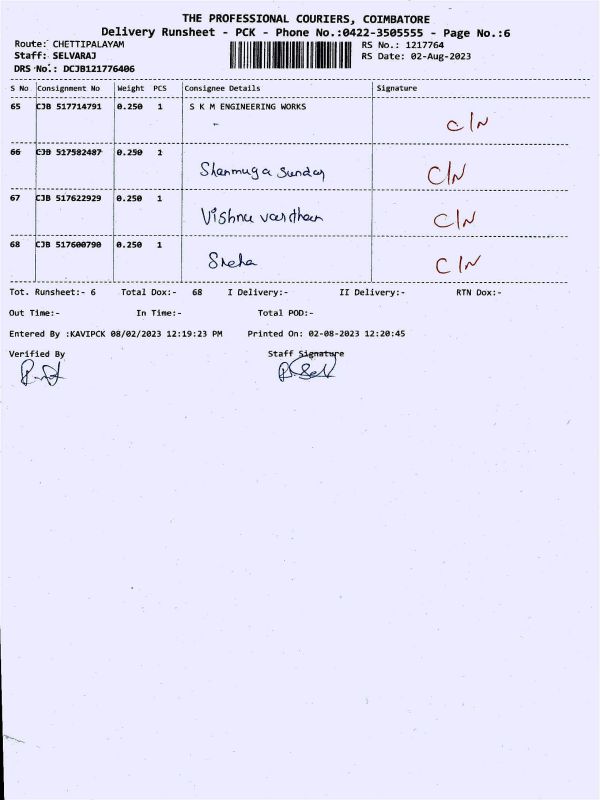 THE PROFESSIONAL COURIERS, COIMBATORE
Delivery Runsheet - PCK - Phone No.:0422-3505555 - Page No.:6
Route: CHETTIPALAYAM RS No.: 1217764
Staff: SELVARAJ RS Date: 02-Aug-2023
DRS No.: DCJB121776406
S No Consignment No Weight PCS Consignee Details Signature
65 CJB 517714791 0.250 1 S K M ENGINEERING WORKS
C/N
66 CJB 517582487 0.250 1
Shanmuga Sundar C/N
67 CJB 517622929 0.250 1
Vishnu vardhan C/N
68 CJB 517600790 0.250 1
Sneha C/N
Tot. Runsheet:- 6 Total Dox:- 68 I Delivery:- II Delivery:- RTN Dox:-
Out Time:- In Time:- Total POD:-
Entered By :KAVIPCK 08/02/2023 12:19:23 PM Printed On: 02-08-2023 12:20:45
Verified By Staff Signature